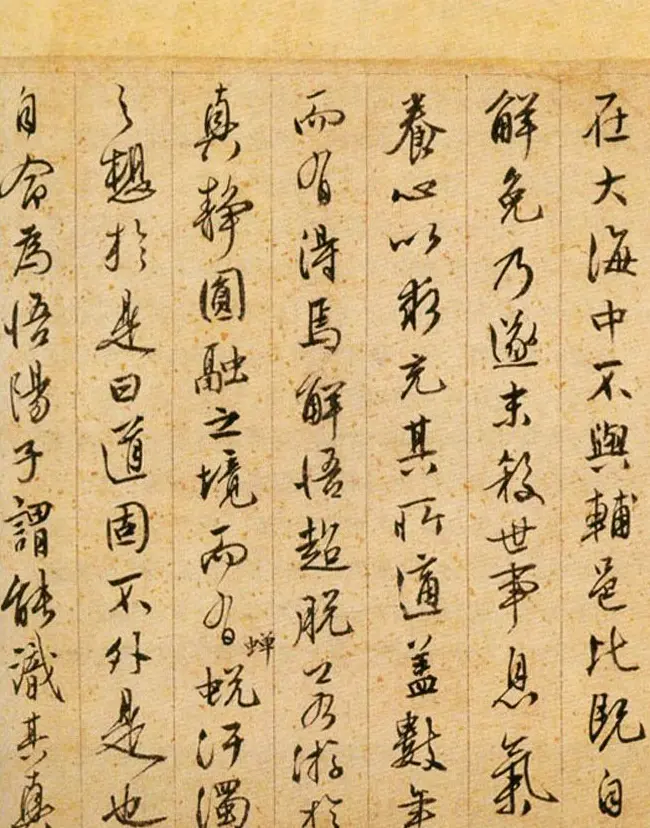 在大海中不與輔邑比既自
解免乃遂末殺世事息氣
養心以求充其所適蓋數年
而有得焉解悟超脫若游於
真靜圓融之境而有蟬蛻汙濁
之想於是曰道固不外是也
自命為悟陽子謂能識其真